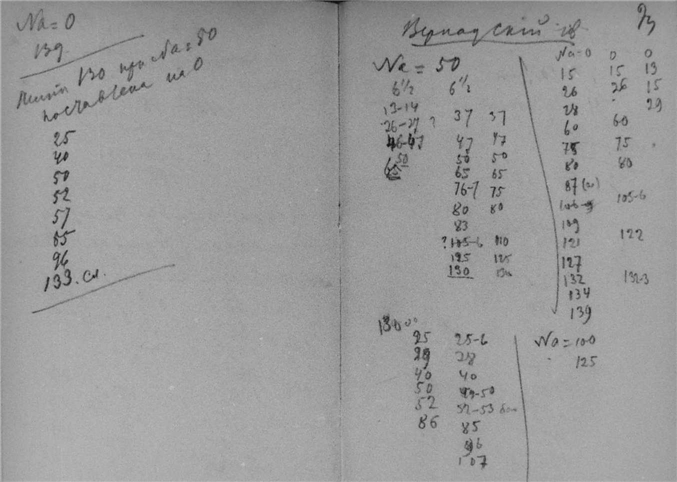 Na = 0
139
Линия 130 при Na = 50
поставлена на 0
25
40
50
52
57
85
96
133. сл.
Вернадский
Na = 50
6½ 6½
13-14
26-27 ? 37 37
46-47 47 47
50 50 50
65 65
76-7 75
80 80
83
? 105-6 110
125 125
130 130
Na = 0 0 0
15 15 13
26 26 15
28 29
60 60
75 75
80 80
87
105-6
119
121 122
127
132 132-3
134
139
130
25 25-6
29 28
40 40
50 49-50
52 52-53
86 85
96
107
Na = 100
125